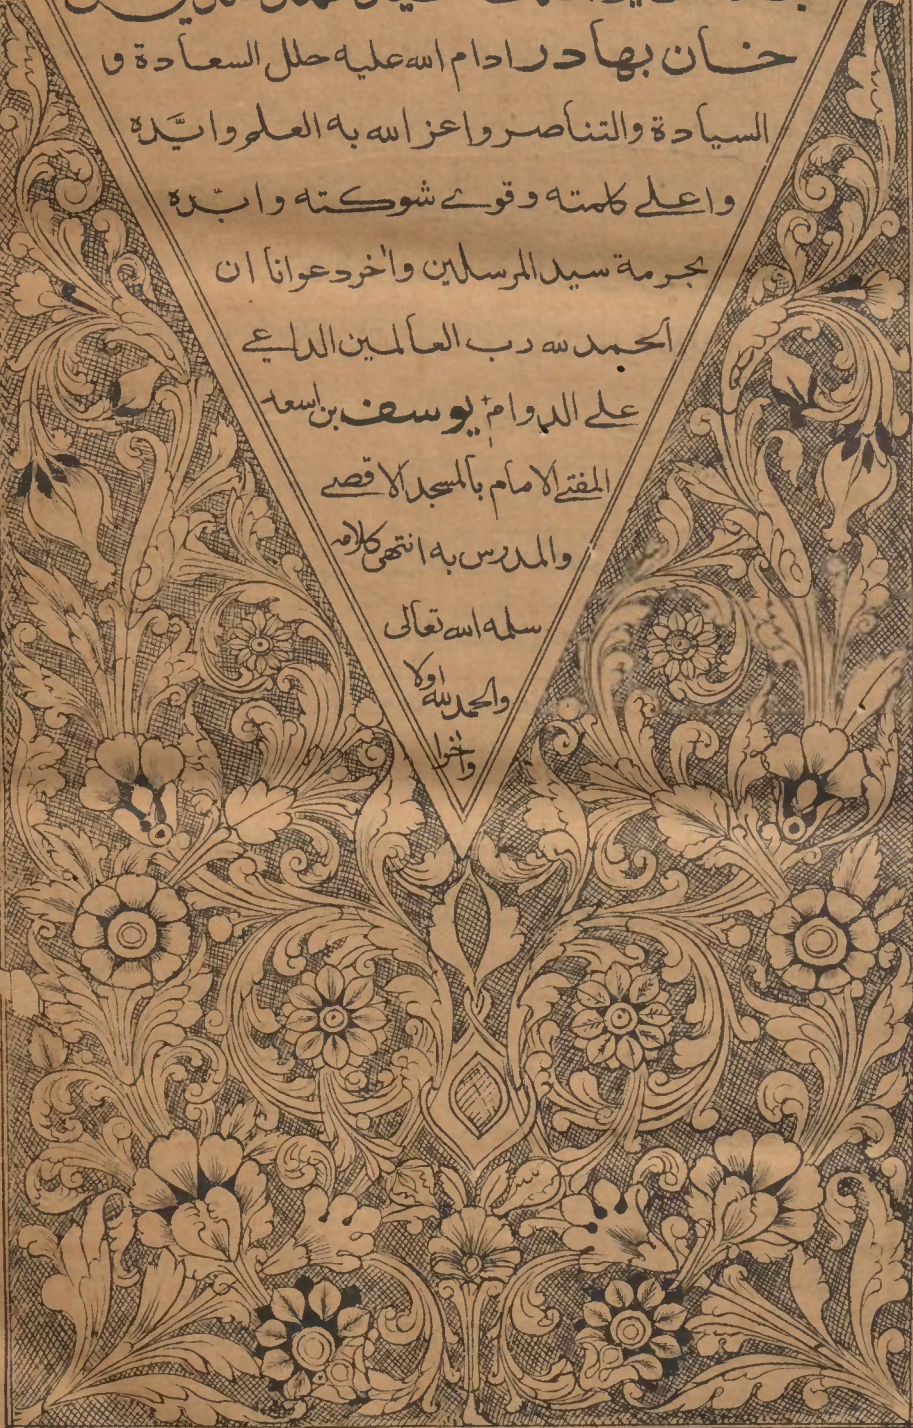 خان بهادر ادام الله عليه حلل السعادة و
السيادة والتناصر واعز الله به العلم وايّده
واعلى كلمته وقوى شوكته وابّده
بحرمة سيد المرسلين واخر دعوانا ان
الحمد لله رب العالمين الداعي
على الدوام يوسف بن اسعد
المفتي الامام بالمسجد الاقصى
والمدرس به انتهى كلامه
سلمه الله تعالى
والحمد لله اولا
واخرا